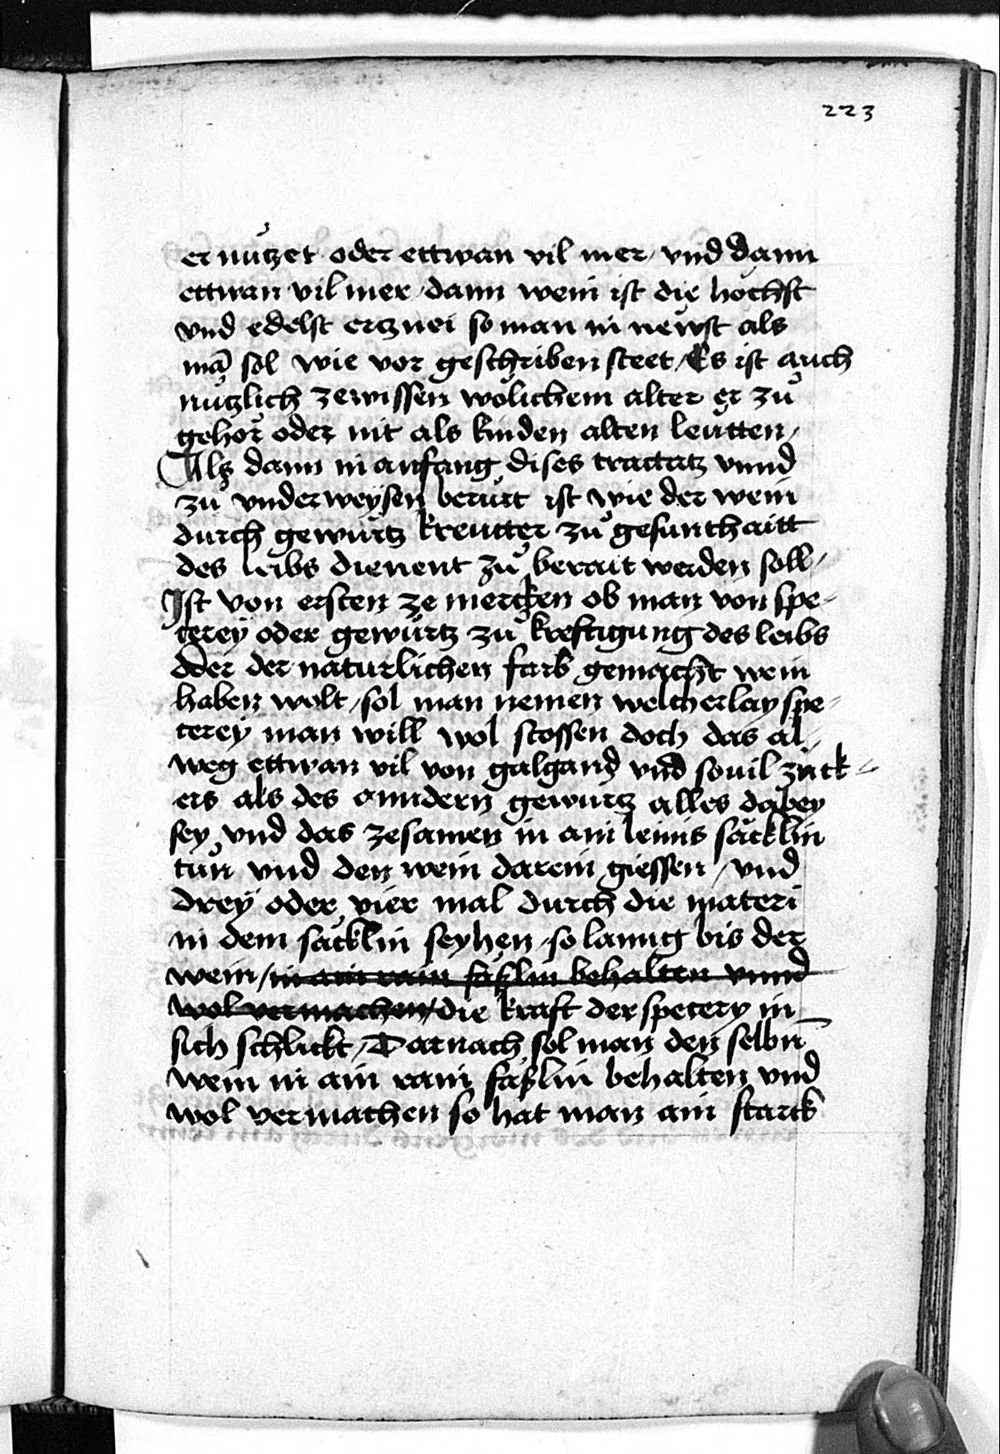 223
er nützet oder ettwan vil mer / vnd dann
ettwan vil mer / dann wein ist die höchst
vnd edelst ertznei so man in newst als
mā sol wie vor geschriben steet / Es ist auch
nützlich zewissen wölichem alter er zů
gehör oder nit als kinden alten leütten /
Als dann in anfang dises tractatz vnnd
zů vnderweysen berürt ist wie der wein
durch gewürtz kreutter zů gesunthaitt
des leibs dienent zů berait werden soll /
Ist von ersten ze mercken ob man von spe-
cerey oder gewürtz zů kreftigung des leibs
oder der naturlichen farb gemacht wein
haben wolt / sol man nemen welcherlay spe-
cerey man will wol stossen doch das al-
weg ettwan vil von galgand vnd souil zuck-
ers als des anndern gewurtz alles dabey
sey vnd das zesamen in ain leinis säcklin
tůn vnd den wein darein giessen / vnd
drey oder vier mal durch die materi
in dem säcklin seyhen so lanng bis der
wein / in ain rain faßlin behalten vnnd
wol vermachen / die kraft der specery in
sich schlickt / Darnach sol man den selbn̄
wein in ain rain faßlin behalten vnd
wol vermachen so hat man ain starck